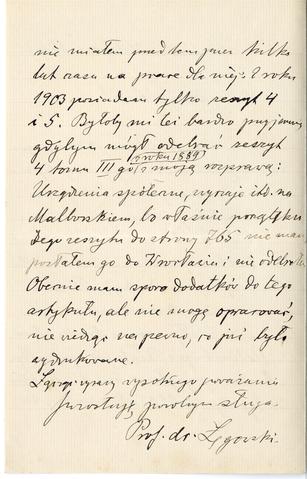 nie miałem przedtem przez kilka
lat czasu na prace dla niej. Z roku
1903 posiadam tylko zeszyt 4
i 5. Byłoby mi też bardzo przyjemnie,
gdybym mógł odebrać zeszyt
4 tomu III go z roku 1889 z moją rozprawą:
Urządzenia społeczne, wyzaje itd. na
Malborskiem, bo właśnie początku
tego zeszytu do strony 765 nie mam
posłałem go do Wrocławia i nie odebrałem
Obecnie mam sporo dodatków do tego
artykułu, ale nie mogę opracować,
nie widząc na pewno, co już było
wydrukowane.
Łączę wyrazy wysokiego poważania
powolnym sługa
Prof. dr. Łęgowski